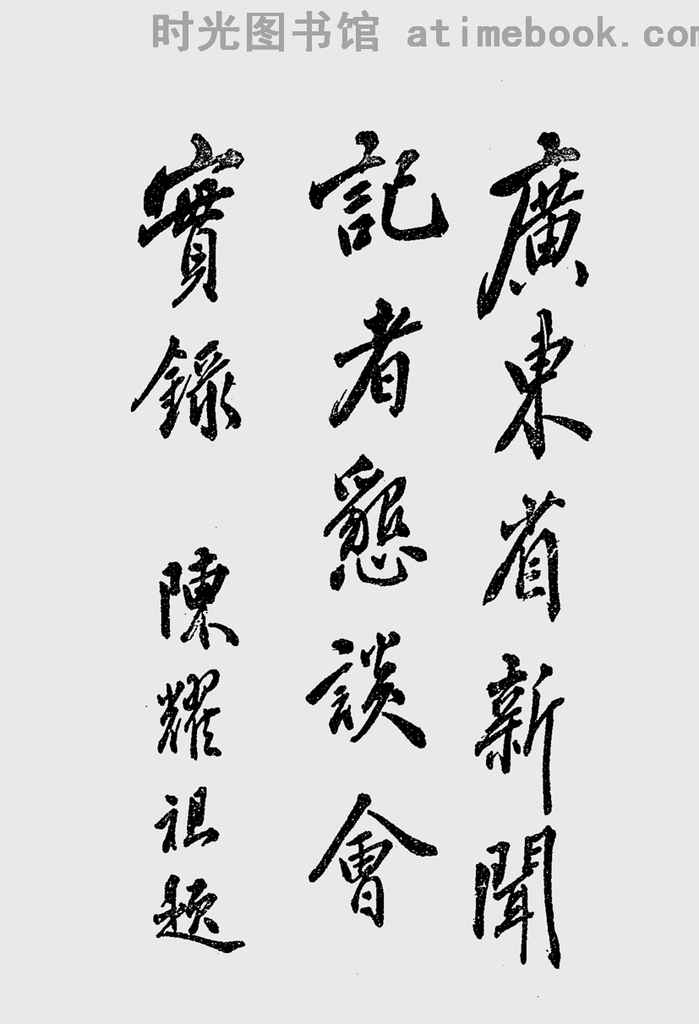 时光图书馆 atimebook.com
廣東省新聞
記者懇談會
實錄 陳耀祖題